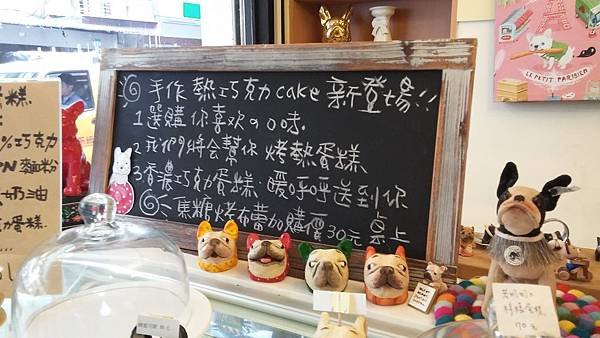 手作 熱巧克力 cake 新登場!!
1.選購你喜歡の口味.
2.我們將會幫你 烤熱蛋糕
3.香濃巧克力蛋糕、暖呼呼送到你
桌上
焦糖烤布蕾加購價30元
LE PETIT PARISIEN
蛋糕.
%巧克力
麵粉
奶油
蛋糕.
70元